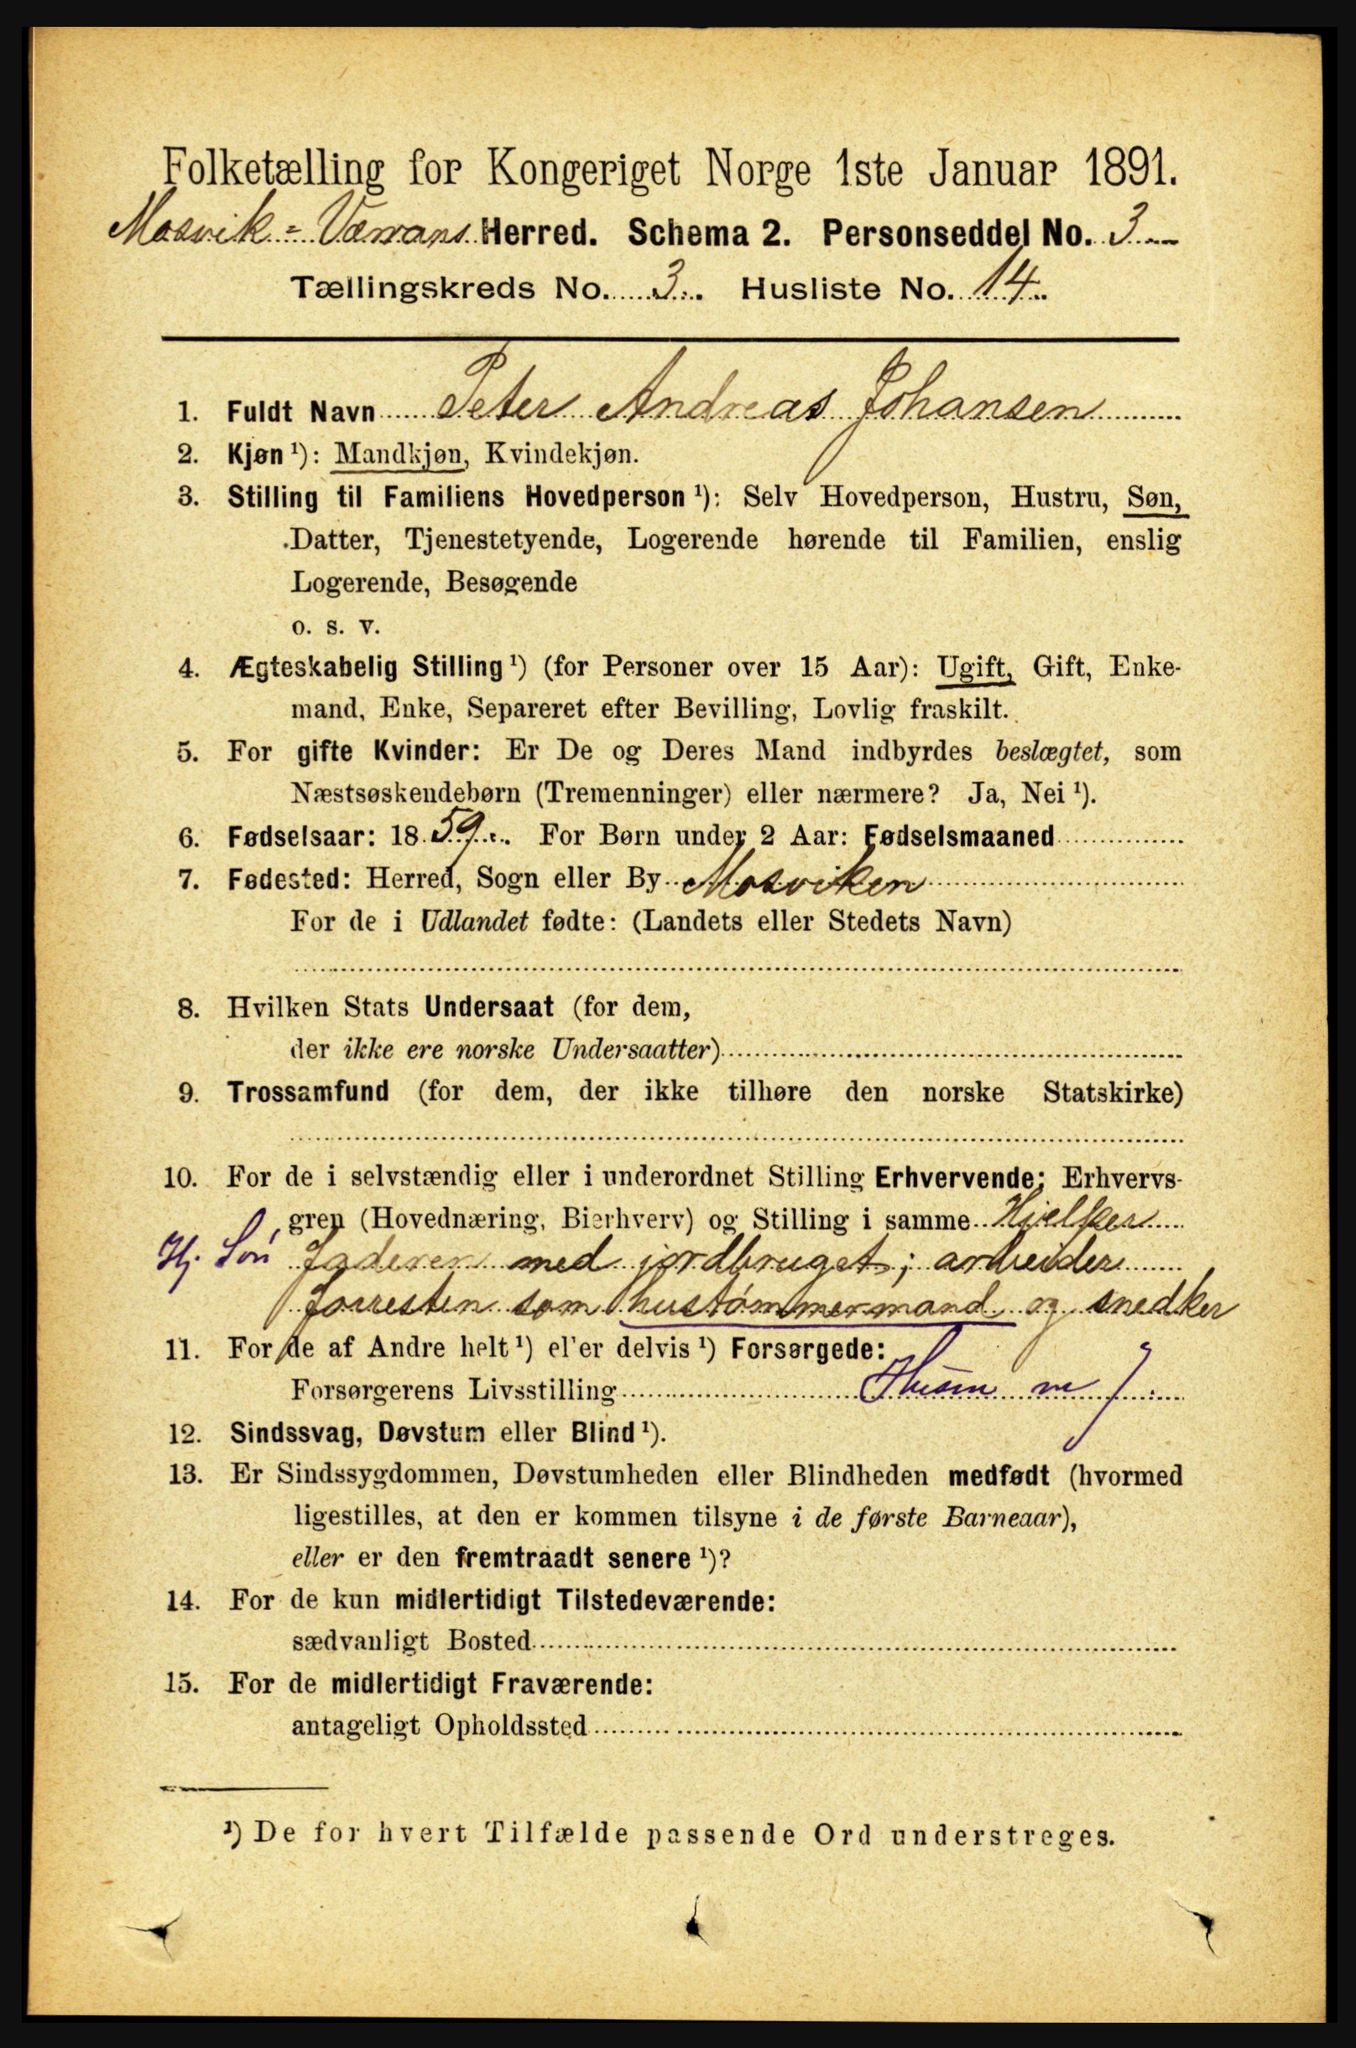 Folketælling for Kongeriget Norge 1ste Januar 1891.
Mosvik=Værrans Herred. Schema 2. Personseddel No. 3
Tællingskreds No. 3. Husliste No. 14.
1. Fuldt Navn Peter Andreas Johansen
2. Kjøn ¹): Mandkjøn, Kvindekjøn.
3. Stilling til Familiens Hovedperson ¹): Selv Hovedperson, Hustru, Søn,
Datter, Tjenestetyende, Logerende hørende til Familien, enslig
Logerende, Besøgende
o. s. v.
4. Ægteskabelig Stilling ¹) (for Personer over 15 Aar): Ugift, Gift, Enke-
mand, Enke, Separeret efter Bevilling, Lovlig fraskilt.
5. For gifte Kvinder: Er De og Deres Mand indbyrdes beslægtet, som
Næstsøskendebørn (Tremenninger) eller nærmere? Ja, Nei ¹).
6. Fødselsaar: 1859. For Børn under 2 Aar: Fødselsmaaned
7. Fødested: Herred, Sogn eller By Mosviken
For de i Udlandet fødte: (Landets eller Stedets Navn)
8. Hvilken Stats Undersaat (for dem,
der ikke ere norske Undersaatter)
9. Trossamfund (for dem, der ikke tilhøre den norske Statskirke)
10. For de i selvstændig eller i underordnet Stilling Erhvervende: Erhvervs-
gren (Hovednæring, Bierhverv) og Stilling i samme Hjelper
Hj. Søn faderen med jordbruget; arbeider
forresten som hustømmermand og snedker
11. For de af Andre helt ¹) el'er delvis ¹) Forsørgede:
Forsørgerens Livsstilling Husm m J.
12. Sindssvag, Døvstum eller Blind ¹).
13. Er Sindssygdommen, Døvstumheden eller Blindheden medfødt (hvormed
ligestilles, at den er kommen tilsyne i de første Barneaar),
eller er den fremtraadt senere ¹)?
14. For de kun midlertidigt Tilstedeværende:
sædvanligt Bosted
15. For de midlertidigt Fraværende:
antageligt Opholdssted
¹) De for hvert Tilfælde passende Ord understreges.